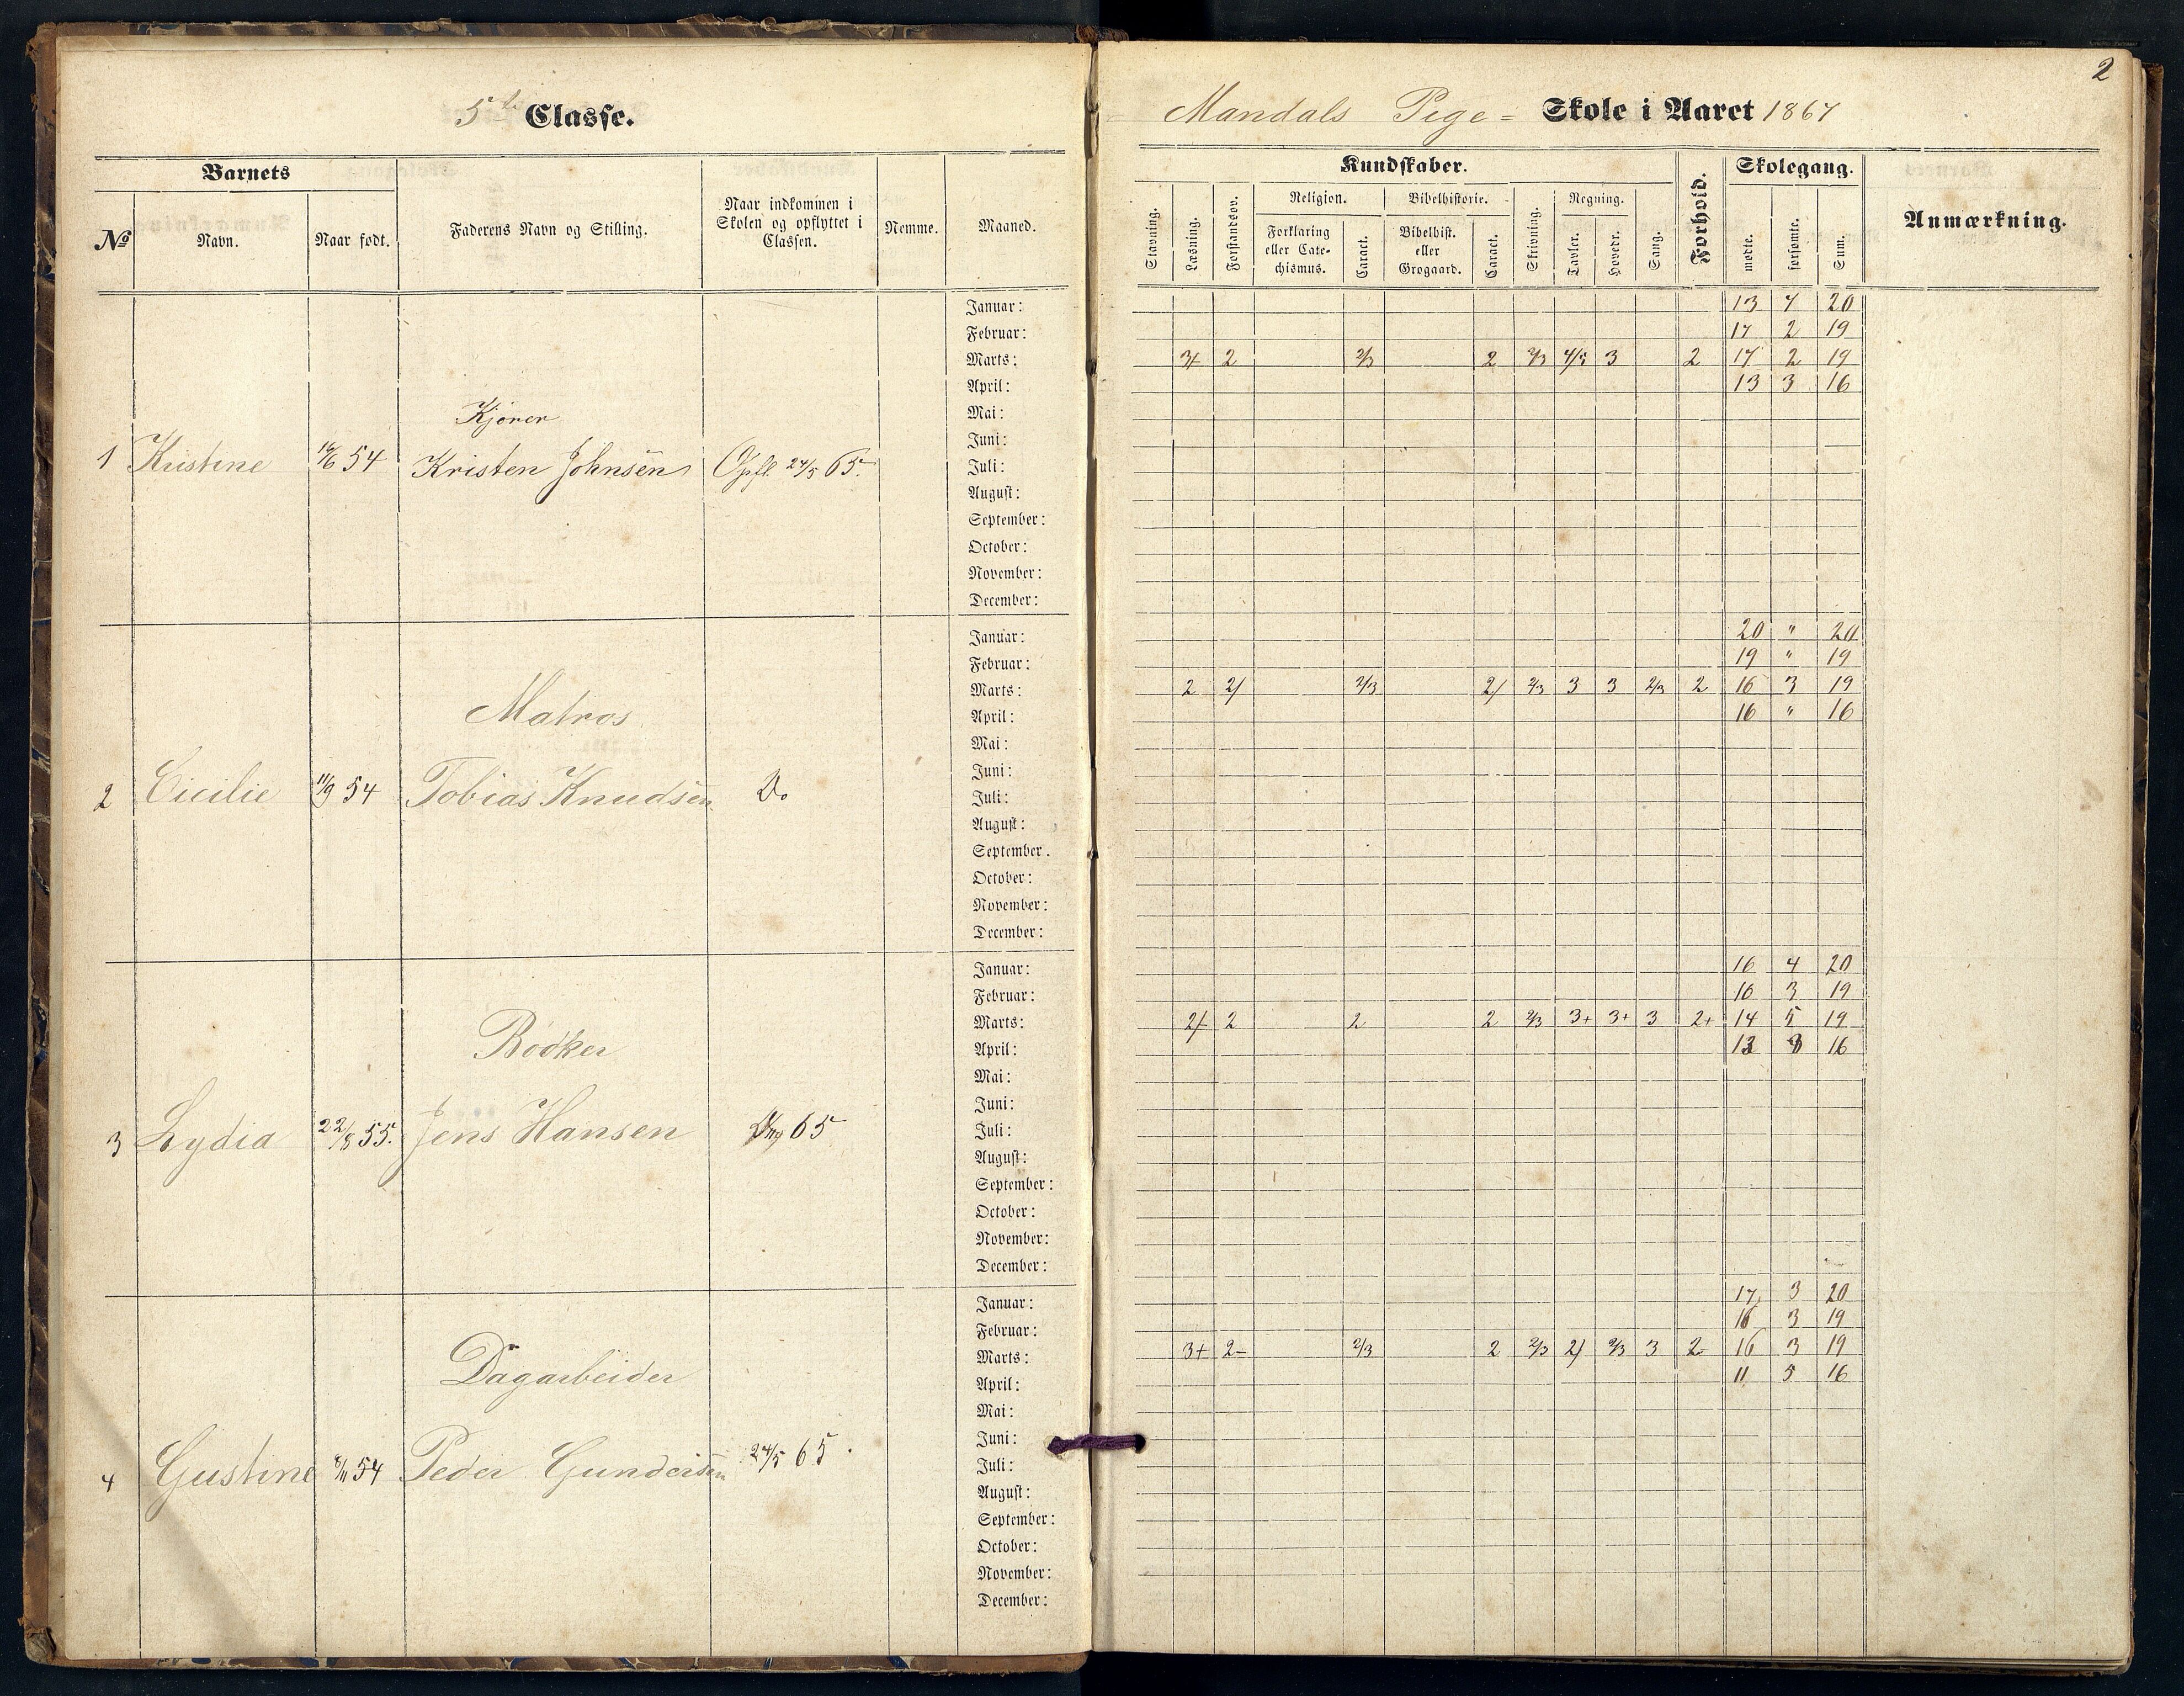 2
5te Classe.
Mandals Pige- Skole i Aaret 1867
Barnets
№
Navn.
Naar født.
Faderens Navn og Stilling.
Naar indkommen i
Skolen og opflyttet i
Classen.
Nemme.
Maaned.
Kundskaber.
Stavning.
Læsning.
Forstandsøv.
Religion.
Forklaring
eller Cate-
chismus.
Caract.
Bibelhistorie.
Bibelhist.
eller
Grøgaard.
Caract.
Skrivning.
Regning.
Tavler.
Hovedr.
Sang.
Forhold.
Skolegang.
mødte.
forsømte.
Sum.
Anmærkning.
Januar: 13 7 20
Februar: 17 2 19
Marts: 3+ 2 2/3 2 2/3 4/5 3 2 17 2 19
April: 13 3 16
Mai:
Kjører
Juni:
1 Kristine 54 Kristen Johnsen Opfl. 24/5 65. Juli:
August:
September:
October:
November:
December:
Januar: 20 " 20
Februar: 19 " 19
Marts: 2 2/ 2/3 2/ 2/3 3 3 2/3 2 16 3 19
Matros
April: 16 " 16
Mai:
Juni:
2 Cicilie 11/9 54 Tobias Knudsen Do Juli:
August:
September.
October:
November:
December:
Januar: 16 4 20
Februar: 16 3 19
Marts: 2/ 2 2 2 2/3 3+ 3+ 3 2+ 14 5 19
Bødker
April: 13 3 16
Mai:
Juni:
3 Lydia 22/8 55. Jens Hansen 65 Juli:
August:
September:
October:
November:
December:
Januar: 17 3 20
Februar: 16 3 19
Marts: 3+ 2- 2/3 2 2/3 2/ 2/3 3 2 16 3 19
Dagarbeider
April: 11 5 16
Mai:
Juni:
4 Gustine 8/11 54 Peder Gundersen 24/5 65. Juli:
August:
September:
October:
November:
December: